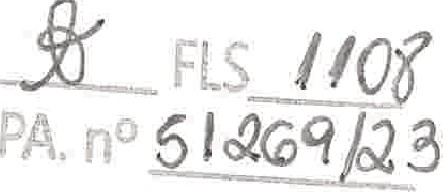 FLS 1108
PA. nº 51269/23